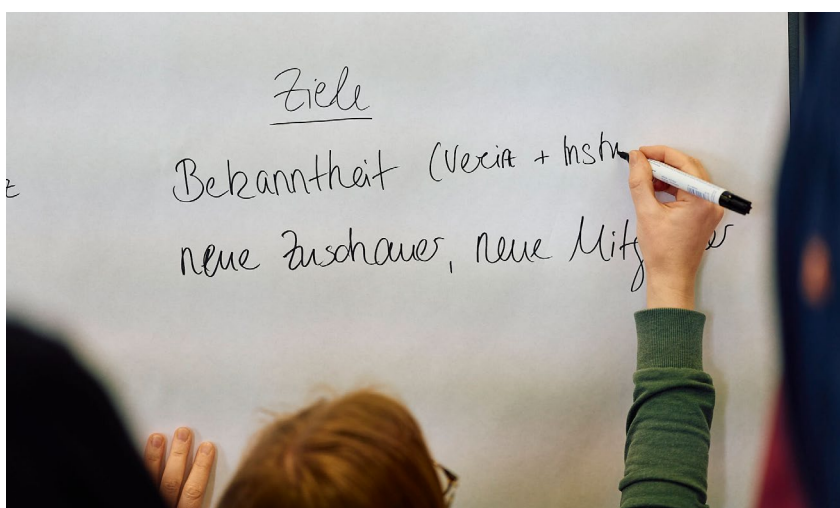 Ziele
Bekanntheit (Verein +
neue Zuschauer, neue